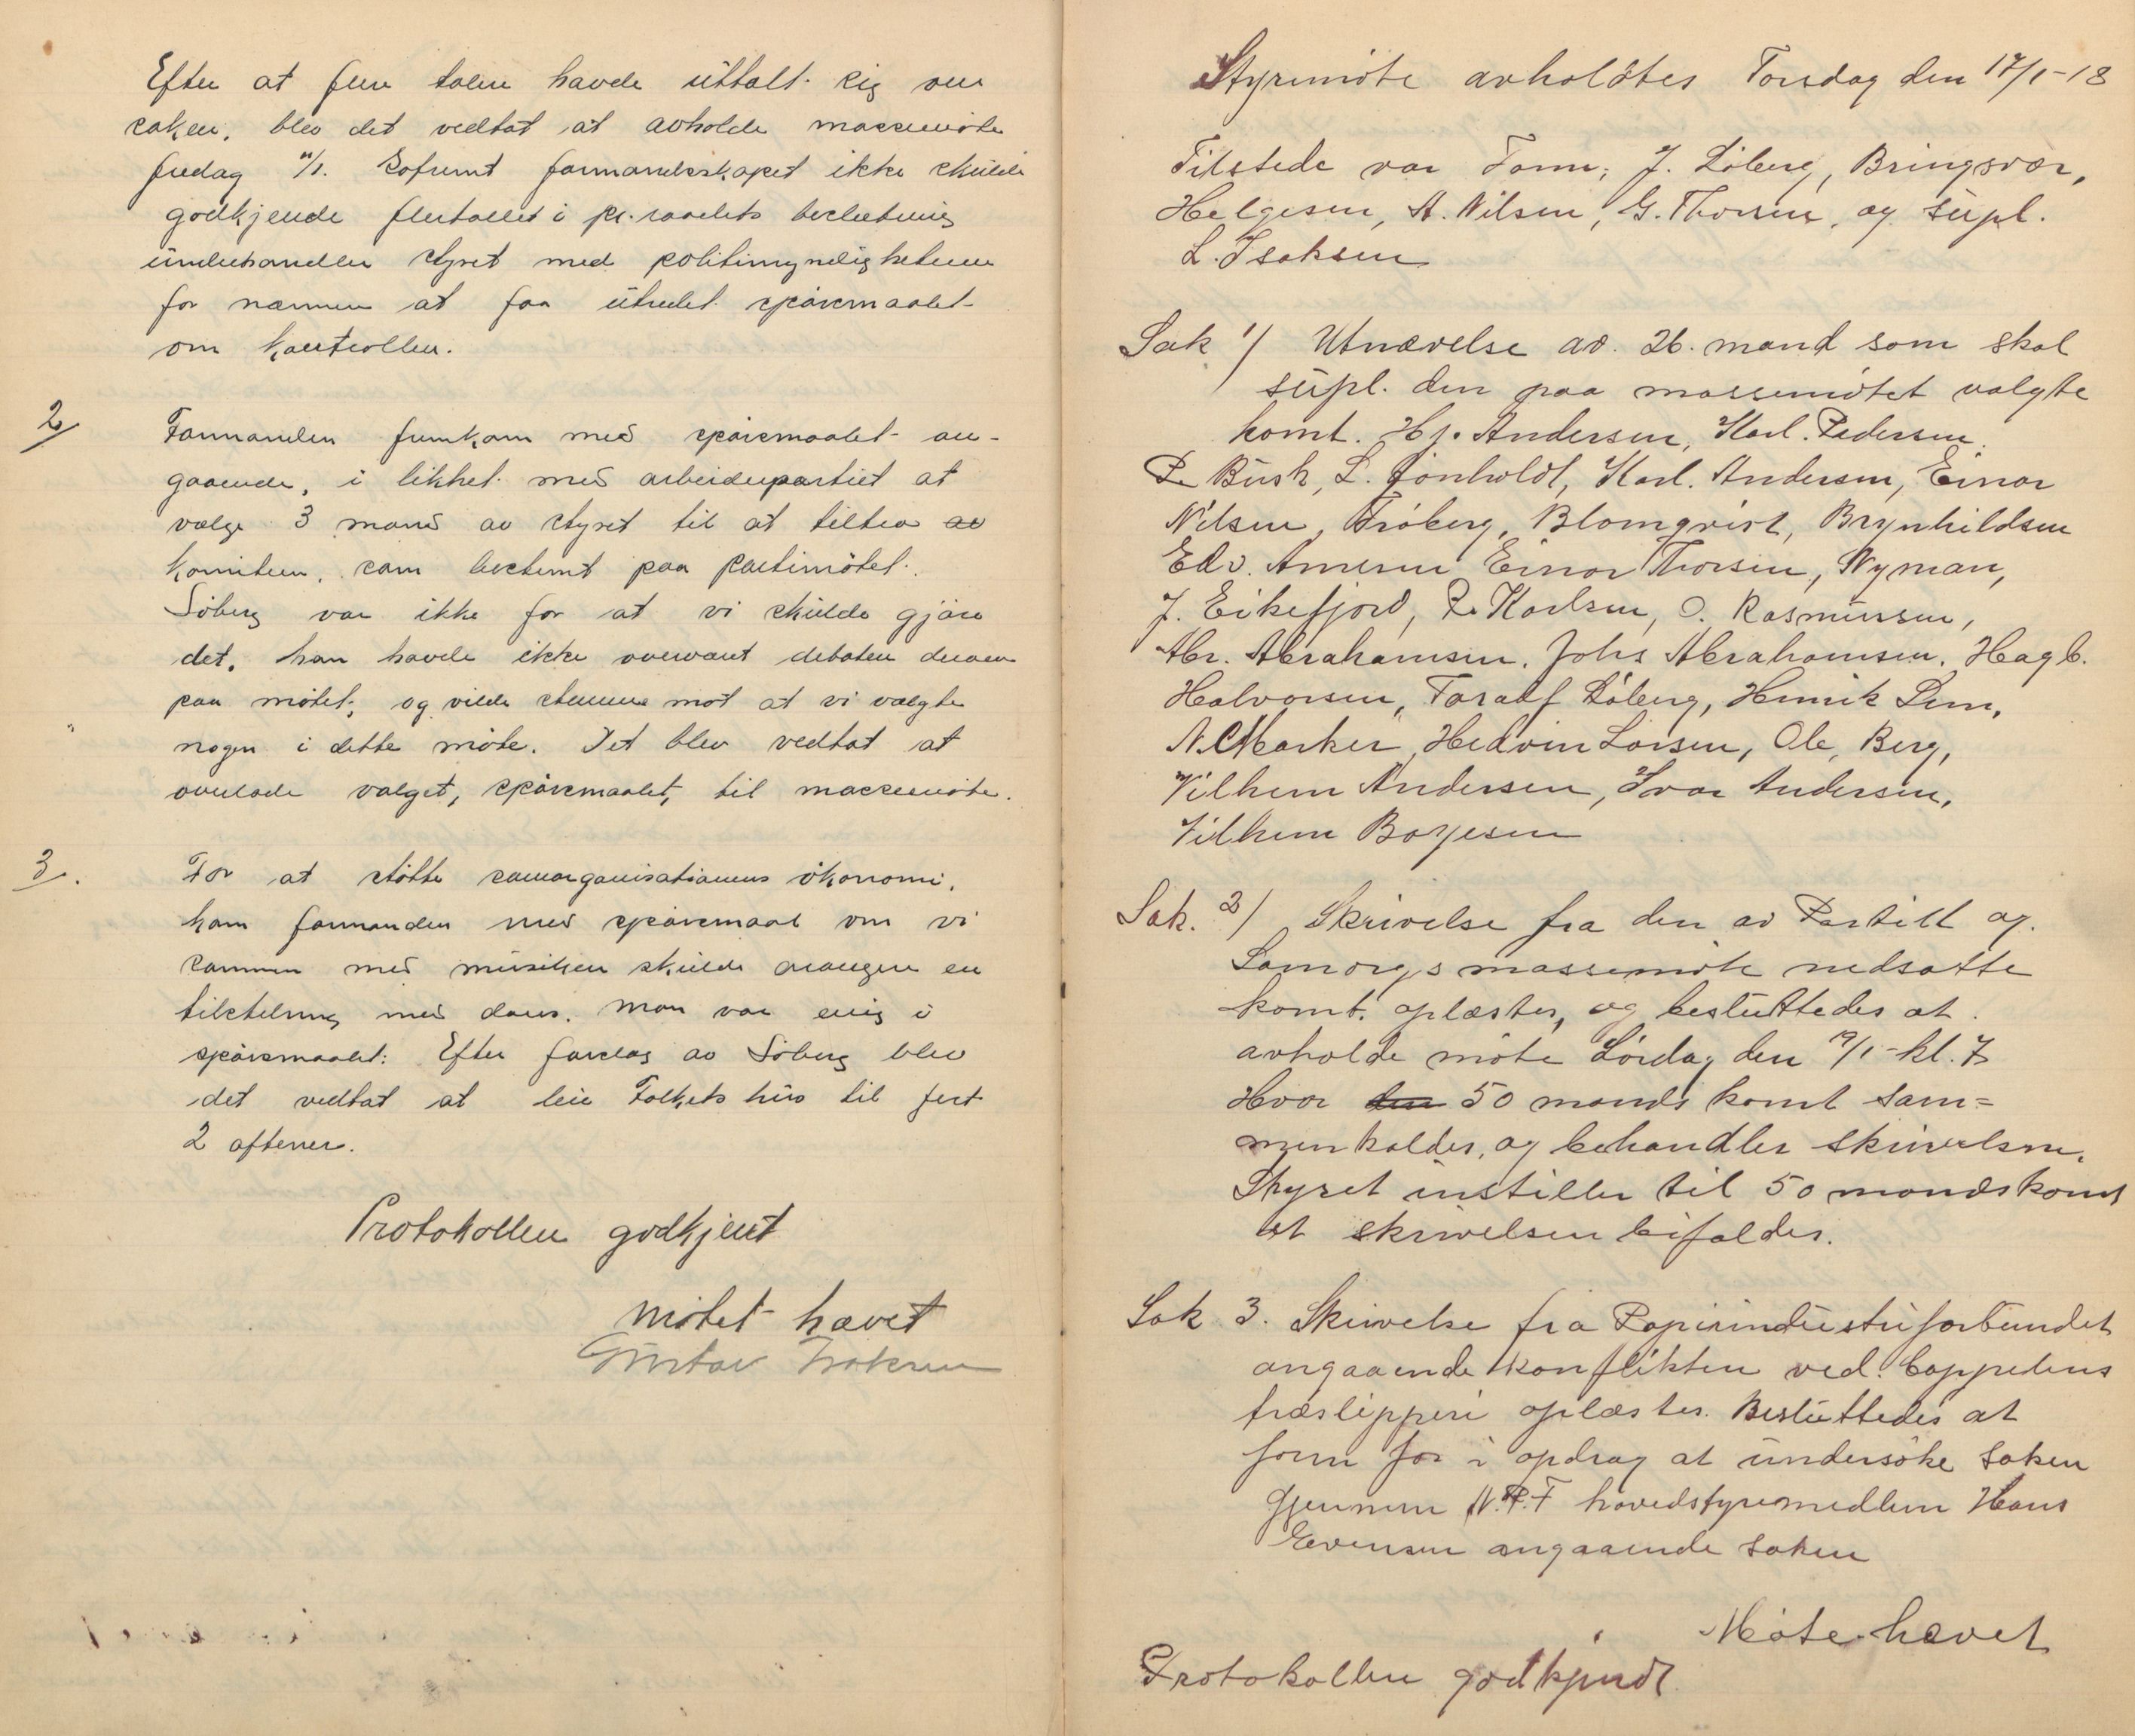 Efter at flere talere havde uttalt sig om
saken, blev det vedtat at avholde massemöte
fredag 11/1. Sofremt formandsskapet ikke skulde
godkjende flertallet i pr. raadets beslutning
underhandler styret med politimyndigheterne
for nærmere at faa utredet spörsmaalet
om kontrollen.
2/ Formanden fremkom med spörsmaalet an-
gaaende, i likhet med arbeiderpartiet at
vælge 3 mand av styret til at tiltræ av
komiteen, som bestemt paa partimötet.
Löberg var ikke for at vi skulde gjöre
det, han havde ikke overvært debaten derom
paa mötet, og vilde stemme mot at vi valgte
nogen i dette möte. Det blev vedtat at
overlade valget, spörsmaalet, til massemöte.
3. For at stötte samorganisationens ökonomi,
kom formanden med spörsmaal om vi
sammen med musikken skulde arangere en
tilstelning med dans. Man var enig i
spörsmaalet: Efter forslag av Löberg blev
det vedtat at leie Folkets hus til fest
2 aftener.
Protokollen godkjent
mötet hævet
Gustav Isaksen
Styremöte avholdtes Torsdag den 17/1-18
Tilstede var Form; J. Löberg, Bringsvær,
Helgesen, A. Nilsen, G. Thorsen, og supl.
L. Isaksen
Sak 1/ Utnævelse av. 26. mand som skal
supl. den paa massemötet valgte
komt. Hj. Andersen, Karl. Pedersen.
P. Busk, L. Jönholdt, Karl. Andersen, Einar
Nilsen, Fröberg, Blomqvist, Brynhildsen
Edv. Amersen Einar Thorsen, Nyman,
J. Eikefjord, P. Karlsen, O. Rasmussen,
Abr. Abrahamsen. Johs Abrahamsen. Hagb.
Halvorsen, Taralf Löberg, Henrik Lem,
N. C Marker, Hedvin Larsen, Ole, Berg,
Vilhem Andersen, Ivar Andersen,
Vilhem Boyesen
Sak. 2/ Skrivelse fra den av Partiet og.
Samorgs massemöte nedsatte
komt. oplæstes, og besluttedes at.
avholde möte Lördag den 19/1-kl. 7
Hvor den 50 mands komt sam=
menkaldes, og behandler skrivelsen.
Styret instiller til 50 mandskomt
at skrivelsen bifaldes.
Sak 3. Skrivelse fra Papirindustriforbundet
angaaende konflikten ved. Cappelens
træsliperi oplæstes. Besluttedes at
form far i opdrag at undersöke saken
gjennem N.P.F hovedstyremedlem Hans
Evensen angaaende saken
Möte hævet
Protokollen godkjendt